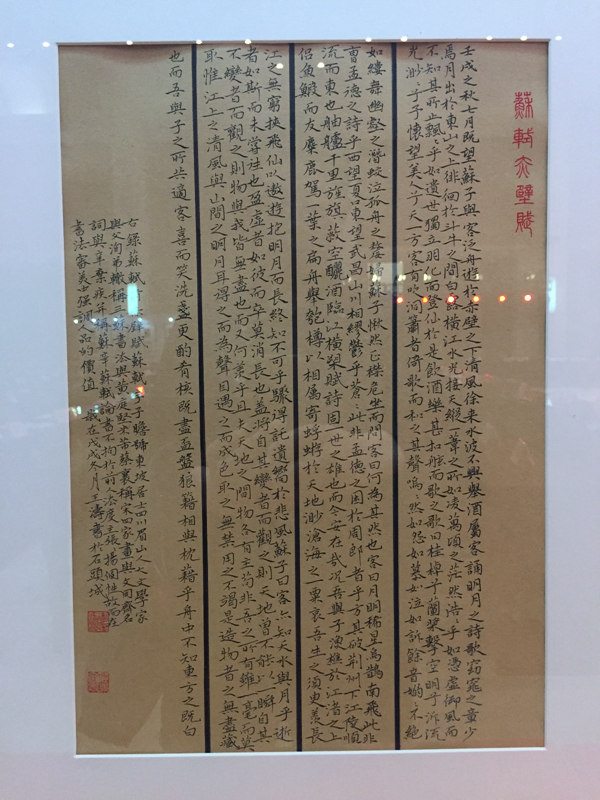 蘇軾赤壁賦
壬戌之秋七月既望蘇子與客泛舟遊於赤壁之下清風徐來水波不興舉酒屬客誦明月之詩歌窈窕之章少
焉月出於東山之上徘徊於斗牛之間白露橫江水光接天縱一葦之所如凌萬頃之茫然浩〻乎如憑虛御風而
不知其所止飄〻乎如遺世獨立羽化而登仙於是飲酒樂甚扣舷而歌之歌曰桂棹兮蘭槳擊空明兮泝流
光渺〻兮予懷望美人兮天一方客有吹洞簫者倚歌而和之其聲嗚〻然如怨如慕如泣如訴餘音嫋〻不絕
如縷舞幽壑之潛蛟泣孤舟之嫠婦蘇子愀然正襟危坐而問客曰何為其然也客曰月明稀星烏鵲南飛此非
曹孟德之詩乎西望夏口東望武昌山川相繆鬱乎蒼〻此非孟德之困於周郎者乎方其破荆州下江陵順
流而東也舳艫千里旌旗蔽空釃酒臨江橫槊賦詩固一世之雄也而今安在哉況吾與子漁樵於江渚之上
侶魚鰕而友麋鹿駕一葉之扁舟舉匏樽以相屬寄蜉蝣於天地渺滄海之一粟哀吾生之須臾羨長
江之無窮挾飛仙以遨遊抱明月而長終知不可乎驟得託遺響於悲風蘇子曰客亦知夫水與月乎逝
者如斯而未嘗往也盈虛者如彼而卒莫消長也蓋將自其變者而觀之則天地曾不能以一瞬自其
不變者而觀之則物與我皆無盡也而又何羨乎且夫天地之間物各有主苟非吾之所有雖一毫而莫
取惟江上之清風與山間之明月耳得之而為聲目遇之而成色取之無禁用之不竭是造物者之無盡藏
也而吾與子之所共適客喜而笑洗盞更酌肴核既盡盃盤狼藉相與枕藉乎舟中不知東方之既白
右錄蘇軾前赤壁賦蘇軾字子瞻號東坡居士四川眉山人文學家
與父洵弟轍稱三蘇書法與黃庭堅米芾蔡襄稱宋四家畫與文同齊名
詞與辛棄疾并稱蘇辛蘇軾論書不拘於前人法度主張揚個性故而在
書法審美中強調人品的價值 歲在戊戌冬月王濤書於石頭城